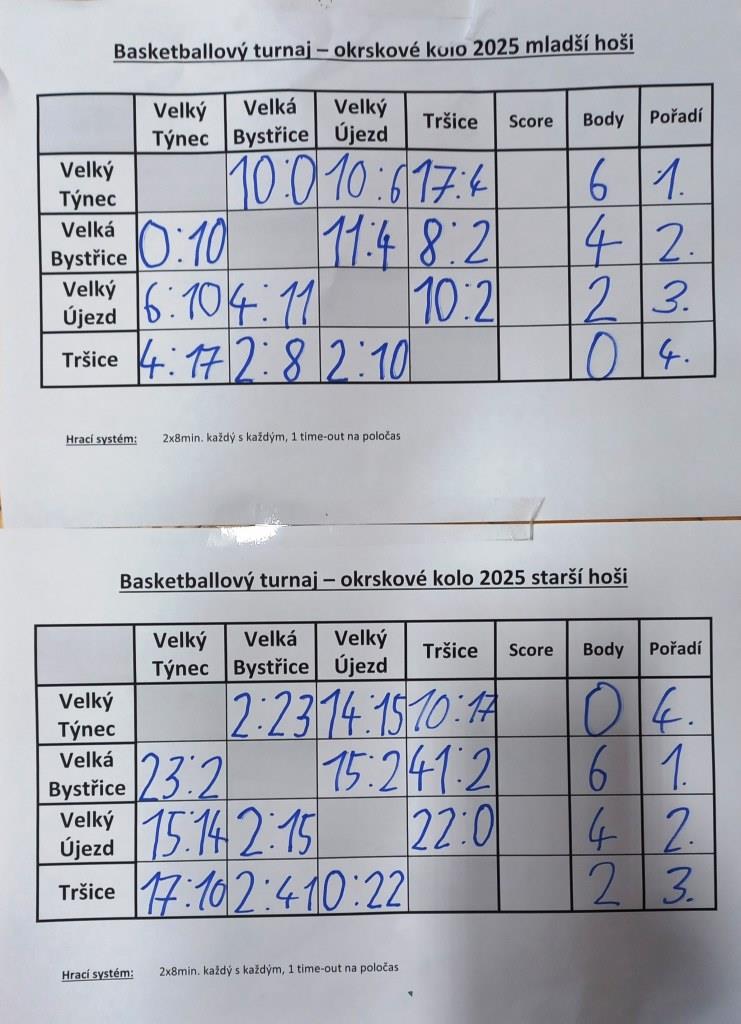 Basketballový turnaj – okrskové kolo 2025 mladší hoši
Velký Týnec Velká Bystřice Velký Újezd Tršice Score Body Pořadí
Velký Týnec 10:0 10:6 17:4 6 1.
Velká Bystřice 0:10 11:4 8:2 4 2.
Velký Újezd 6:10 4:11 10:2 2 3.
Tršice 4:17 2:8 2:10 0 4.
Hrací systém: 2x8min. každý s každým, 1 time-out na poločas
Basketballový turnaj – okrskové kolo 2025 starší hoši
Velký Týnec Velká Bystřice Velký Újezd Tršice Score Body Pořadí
Velký Týnec 2:23 14:15 10:17 0 4.
Velká Bystřice 23:2 15:2 41:2 6 1.
Velký Újezd 15:14 2:15 22:0 4 2.
Tršice 17:10 2:41 0:22 2 3.
Hrací systém: 2x8min. každý s každým, 1 time-out na poločas